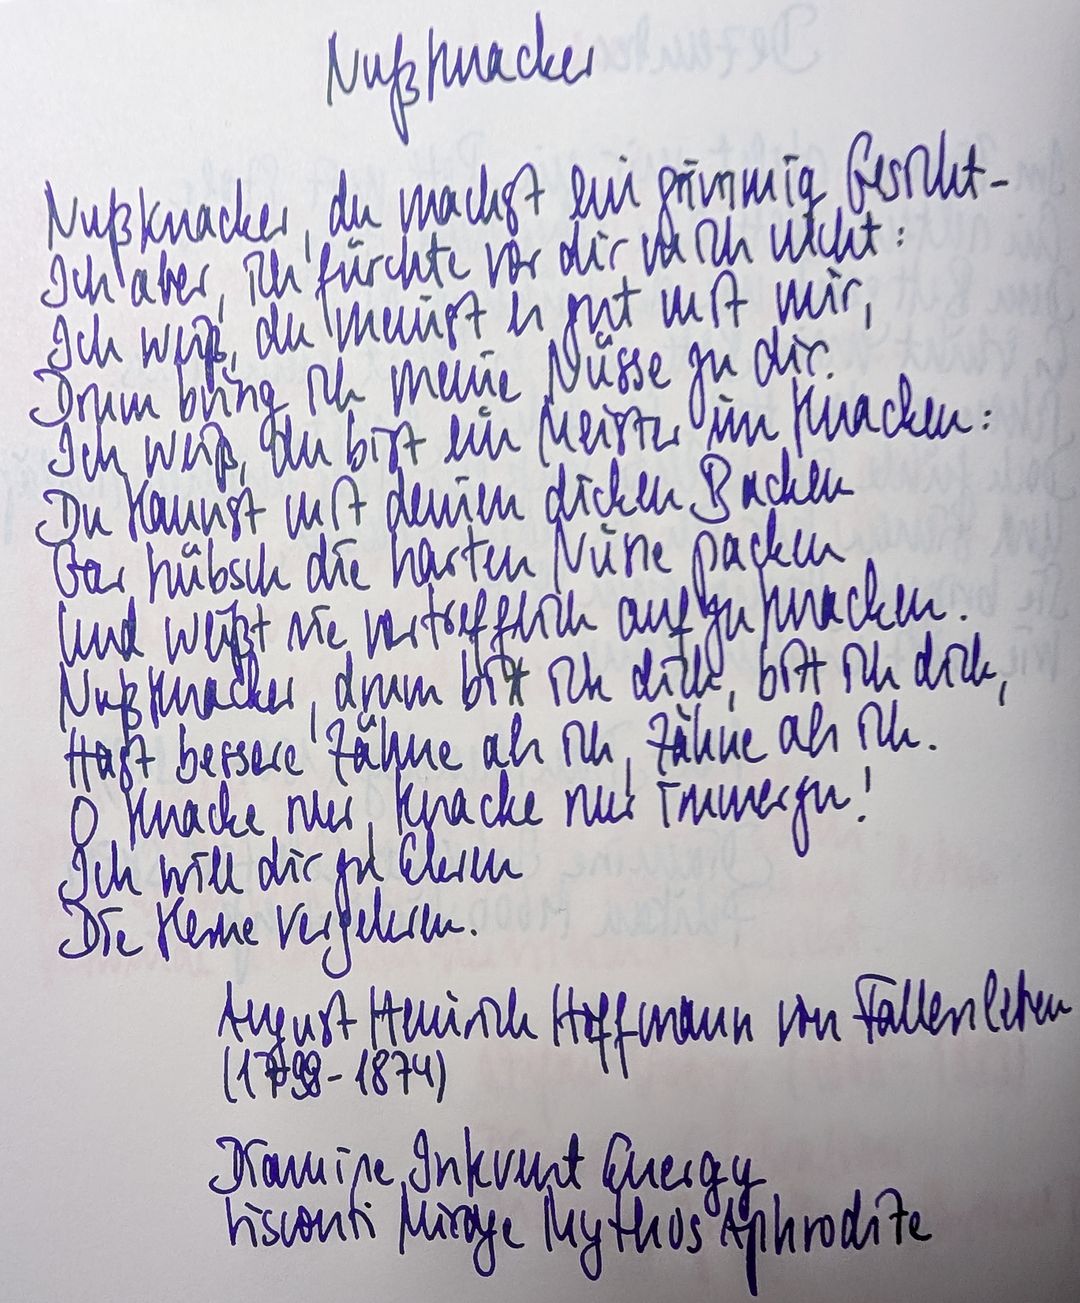 Nußknacker
Nußknacker, du machst ein grimmig Gesicht -
Ich aber, ich fürchte vor dir mich nicht:
Ich weiß, du meinst es gut mit mir,
Drum bring ich meine Nüsse zu dir.
Ich weiß, du bist ein Meister im Knacken:
Du kannst mit deinen dicken Backen
Gar hübsch die harten Nüsse packen
Und weißt sie vortrefflich aufzuknacken.
Nußknacker, drum bitt ich dich, bitt ich dich,
Hast bessere Zähne als ich, Zähne als ich.
O knacke nur, knacke nur immerzu!
Ich will dir zu Ehren
Die Kerne verzehren.
August Heinrich Hoffmann von Fallersleben
(1798 - 1874)
Diamine Inkvent Energy
Visconti Mirage Mythos Aphrodite